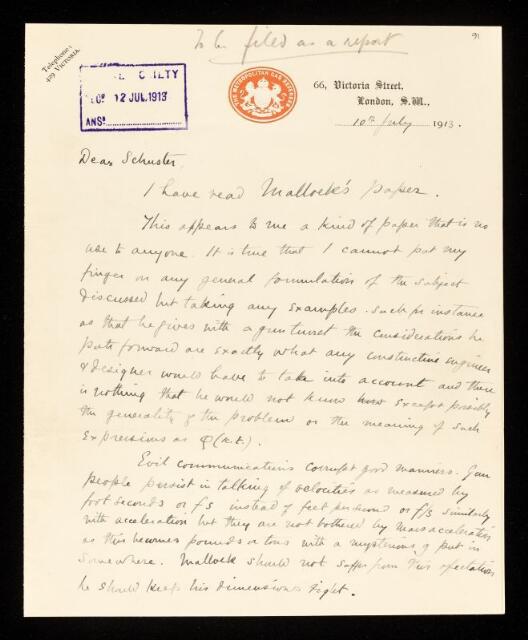 To be filed as a report
91
Telephone:
429 Victoria.
12 JUL.1913
ANSD
THE METROPOLITAN GAS REFEREES
66, Victoria Street,
London, S.W.,
10th July 1913.
Dear Schuster,
I have read Mallock's paper.
This appears to me a kind of paper that is no
use to anyone. It is true that I cannot put my
finger on any general formulation of the subject
discussed but taking any examples. Such for instance
as that he gives with a gun turret the considerations he
puts forward are exactly what any constructive engineer
& designer would have to take into account and there
is nothing that he would not know except possibly
the generality of the problem or the meaning of such
expressions as φ(x.t.).
Evil communications corrupt good manners. Gun
people persist in talking of velocities as measured by
foot seconds or fs instead of feet per second or f/s similarly
with acceleration but they are not bothered by mass acceleration
as this becomes pounds or tons with a mysterious g put in
somewhere. Mallock should not suffer from this
he should keep his dimensions right.